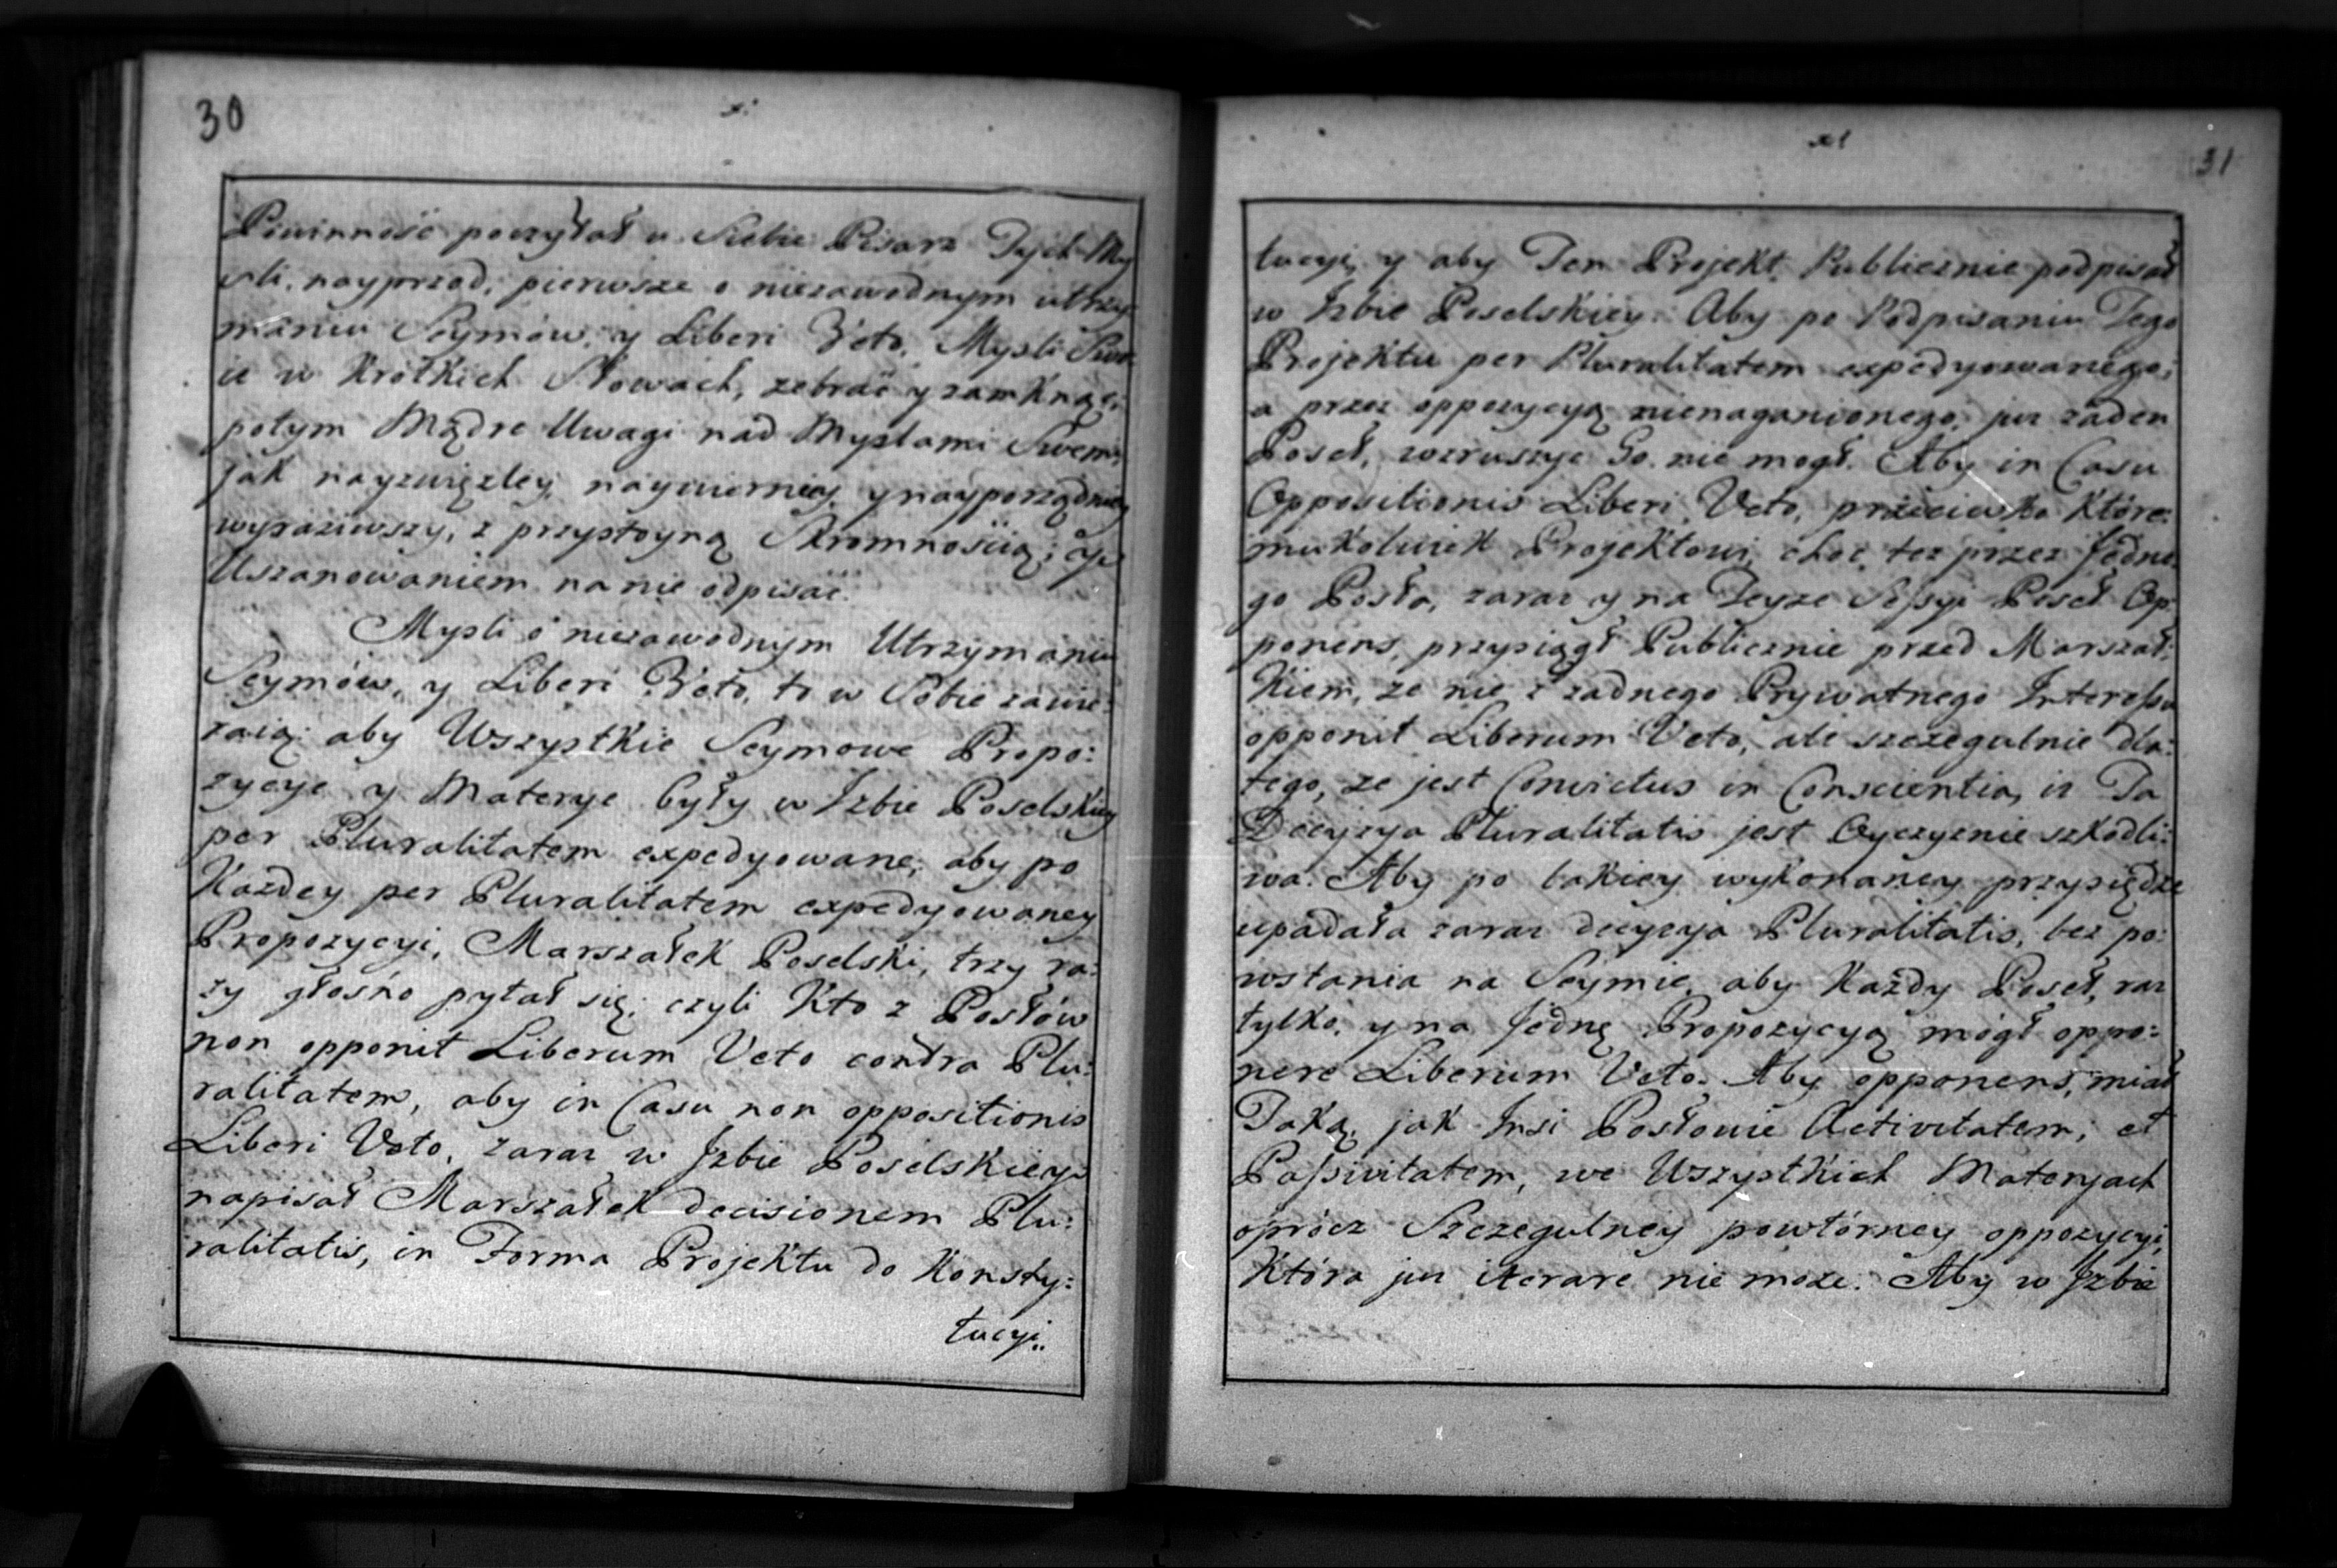 30
Powinność poczytał u Siebie Pisarz Tych My
sli, nayprzod, pierwsze o niezawodnym utrzy:
maniu Seymów, y Liberi Veto, Mysli Swo:
ie w Krotkich Słowach, zebrać y zamknąć;
potym Mądre Uwagi nad Myslami Swemi
jak nayzwięzley, naywierniey, y nayporządniey
wyraziwszy, z przystoyną Skromnością, czy
Uszanowaniem na nie odpisać.
Mysli o niezawodnym Utrzymaniu
Seymów, y Liberi Veto, to w Sobie zawie:
raią: aby Wszystkie Seymowe Propo:
zycye y Materye były w Izbie Poselskiey
per Pluralitatem expedyowane; aby po
Każdey per Pluralitatem expedyowaney
Propozycyi, Marszałek Poselski, trzy ra:
zy głośno pytał się; czyli Kto z Posłów
non opponit Liberum Veto contra Plu:
ralitatem, aby in Casu non oppositionis
Liberi Veto, zaraz w Jzbie Poselskiey
napisał Marszałek decisionem Plu:
ralitatis, in Forma Projektu do Konsty:
tucyi..
31
tucyi, y aby Ten Projekt Publicznie podpisał
w Izbie Poselskiey. Aby po Podpisaniu Tego
Projektu per Pluralitatem expedyowanego;
a przez oppozycyą nienaganionego, juz zaden
Poseł, wzruszyc Go nie mogł. Aby in Casu
Oppositionis Liberi Veto, przeciwko Które:
mukolwiek Projektowi, choc tez przez Jedne:
go Posła, zaraz y na Teyze Sessyi Poseł Op:
ponens, przysiągł Publicznie przed Marszał:
Kiem, ze nie z zadnego Prywatnego Interessu
opponit Liberum Veto, ale szczegulnie dla:
tego, ze jest Convictus in Conscientia, iz Ta
Decyzya Pluralitatis jest Oyczyznie szkodli:
wa. Aby po takiey wykonaney przysiędze
upadała zaraz decyzya Pluralitatis, bez po:
wstania na Seymie, aby Każdy Poseł, raz
tylko, y na Jednę Propozycyą mógł oppo:
nere Liberum Veto. Aby opponens, miał
Taką, jak Insi Posłowie Activitatem, et
Passivitatem, we Wszystkich Materyach
oprócz Szczegulney powtórney oppozycyi,
Która juz iterare nie moze. Aby w Jzbie